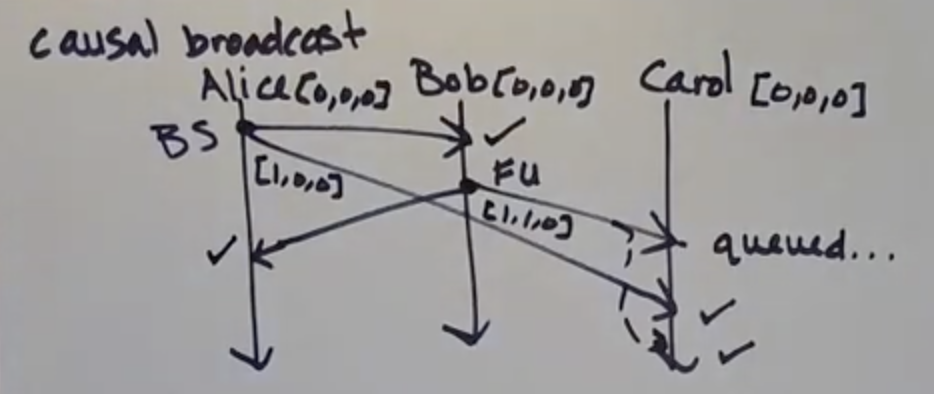 causal broadcast
Alice [0,0,0] Bob [0,0,0] Carol [0,0,0]
BS ✓
[1,0,0] FU
[1,1,0]
✓ queued...
✓
✓